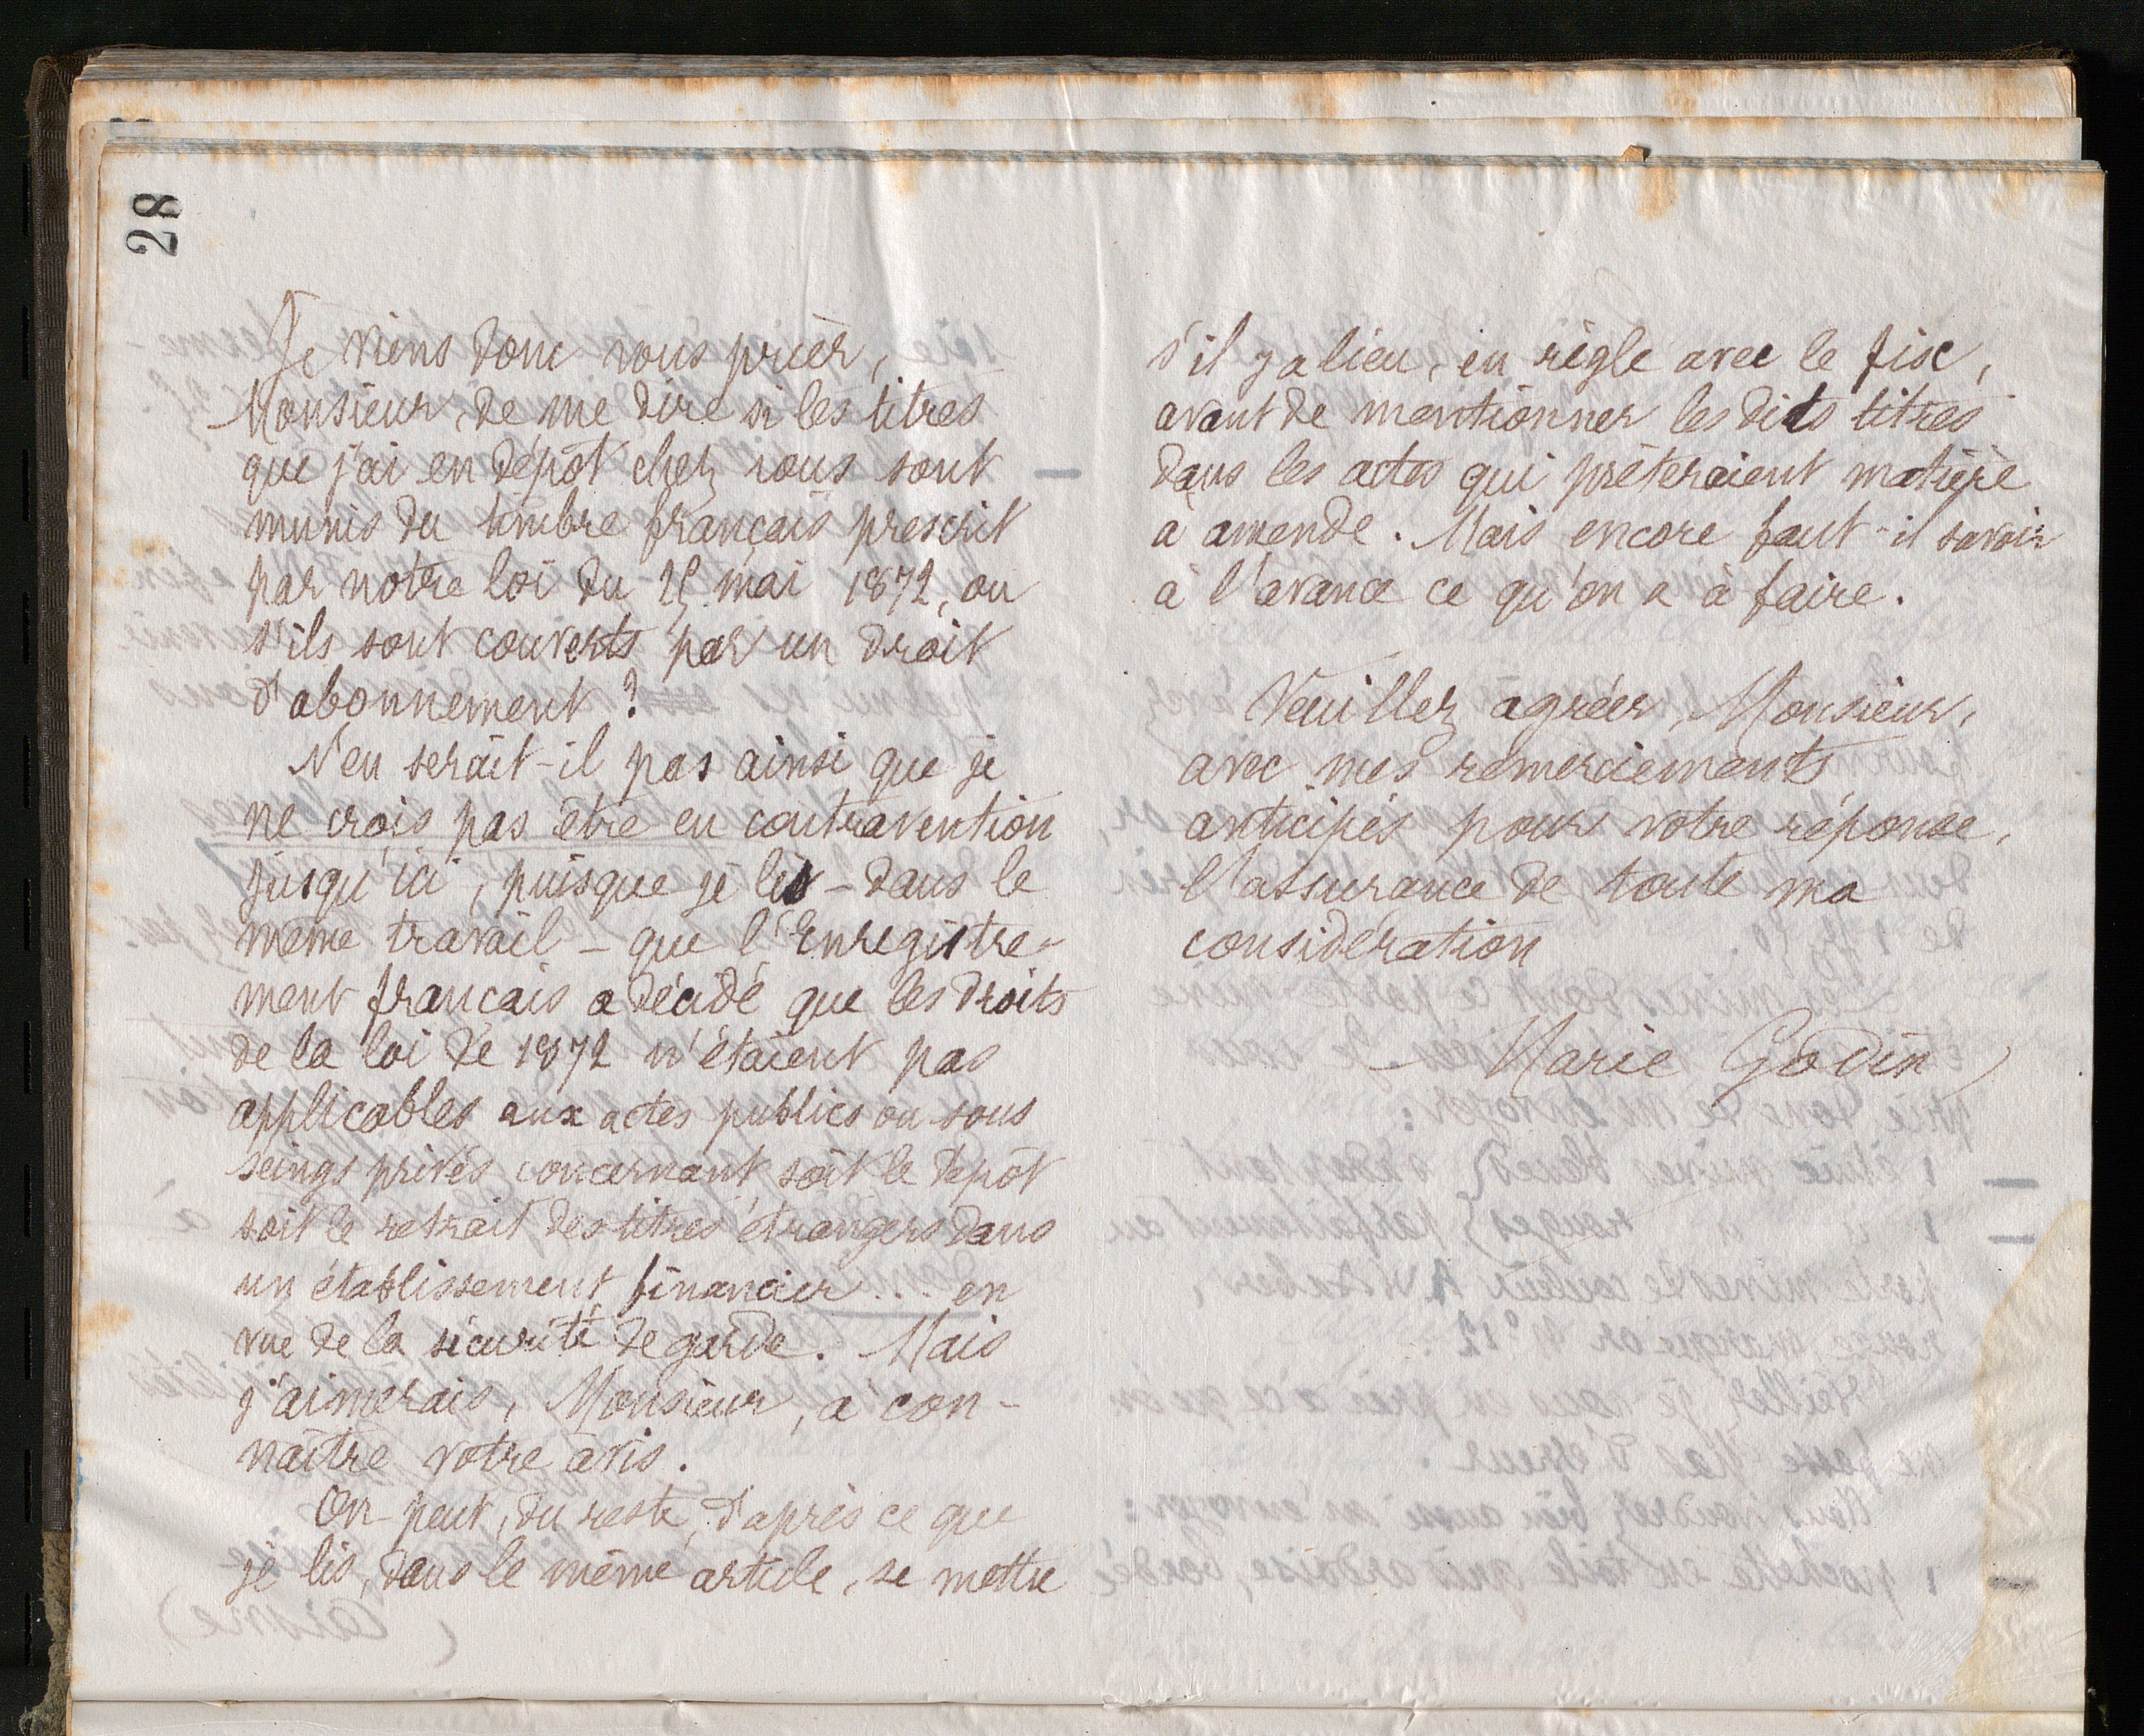 28
Je viens donc vous prier,
Monsieur, de me dire si les titres
que j'ai en dépôt chez vous sont
munis du timbre français prescrit
par notre loi du 25 mai 1872, ou
s'ils sont couverts par un droit
d'abonnement ?
N'en serait-il pas ainsi que je
ne crois pas être en contravention
jusqu'ici, puisque je lis - dans le
même travail - que l'Enregistre-
ment français a décidé que les droits
de la loi de 1872 n'étaient pas
applicables aux actes publics ou sous
seings privés concernant soit le dépôt
soit le retrait des titres étrangers dans
un établissement financier... en
vue de la sécurité de garde. Mais
j'aimerais, Monsieur, à con-
naître votre avis.
On peut, du reste, d'après ce que
je lis, dans le même article, se mettre
s'il y a lieu, en règle avec le fisc,
avant de mentionner les dits titres
dans les actes qui prêteraient matière
à amende. Mais encore faut-il savoir
à l'avance ce qu'on a à faire.
Veuillez agréer, Monsieur,
avec mes remerciements
anticipés pour votre réponse,
l'assurance de toute ma
considération
Marie Godin